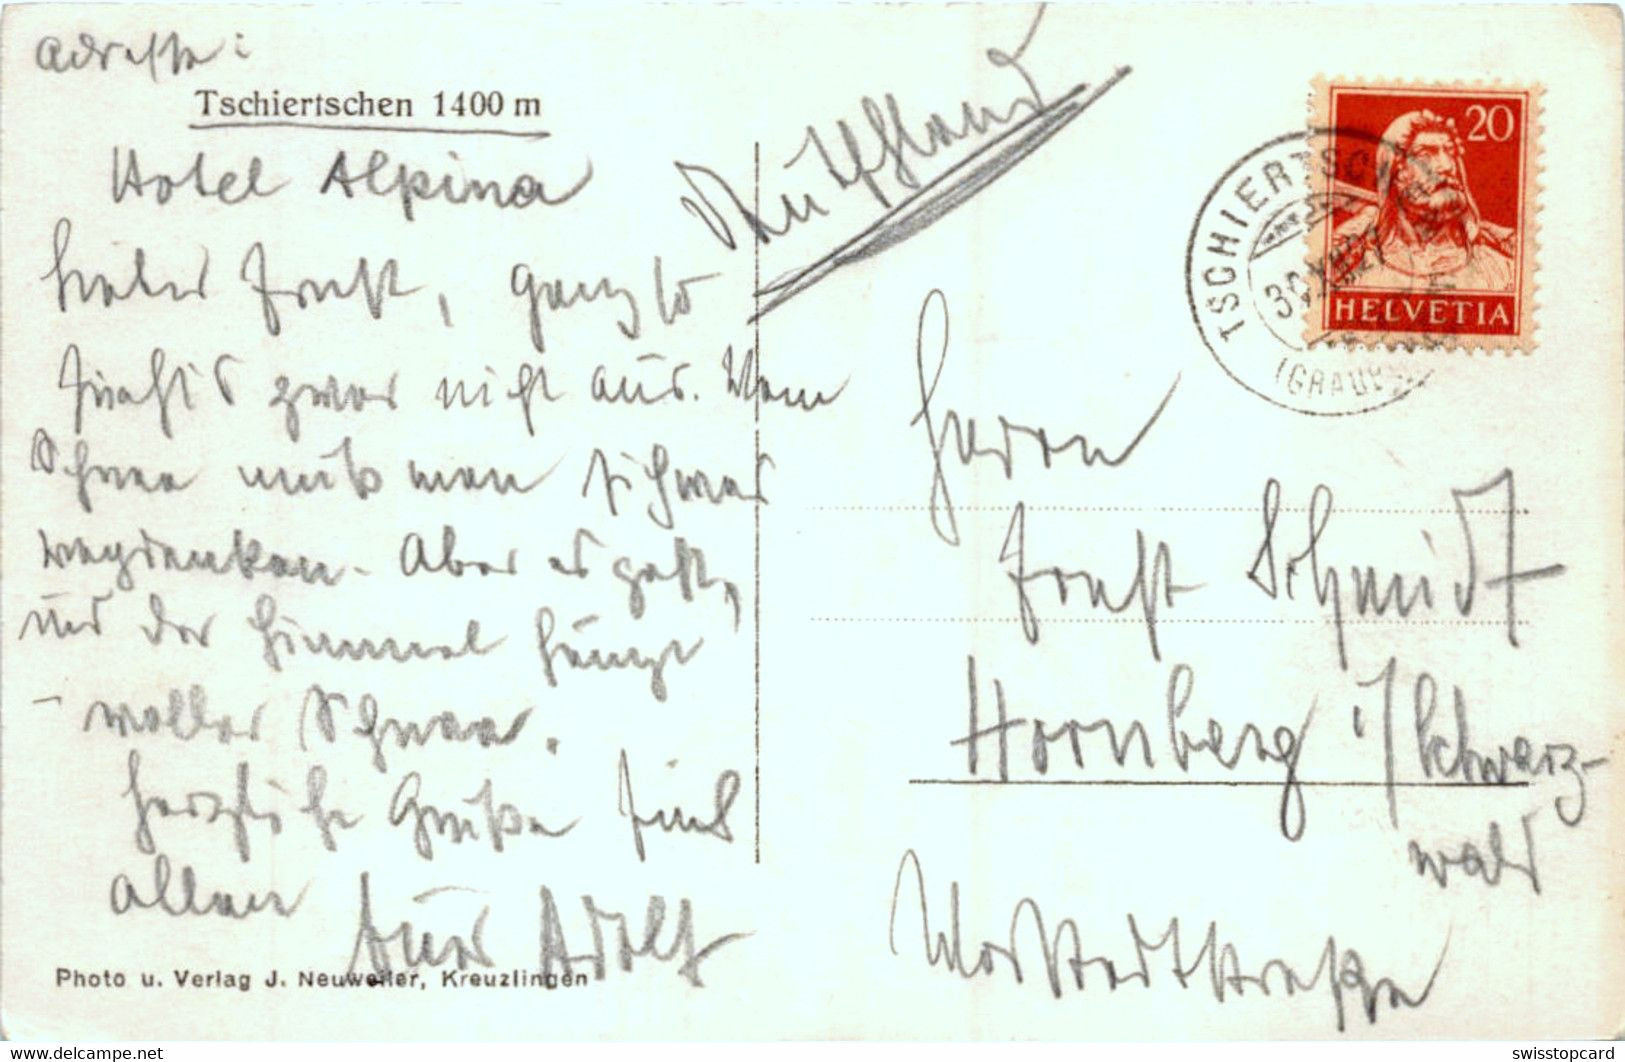 Adresse:
Tschiertschen 1400 m
Hotel Alpina
Lieber Ernst, ganz so
sieht's zwar nicht aus. Vom
Schnee muß man sich was
wegdenken. Aber es geht,
und der Himmel hängt
voller Schnee.
Herzliche Grüße Euch
allen Euer Adolf
Photo u. Verlag J. Neuweiler, Kreuzlingen
Deutschland
20
HELVETIA
TSCHIERTSCHEN
(GRAUB
Herrn
Ernst Schmidt
Hornberg i/Schwarz-
wald
Vorstadtstraße
swisstopcard